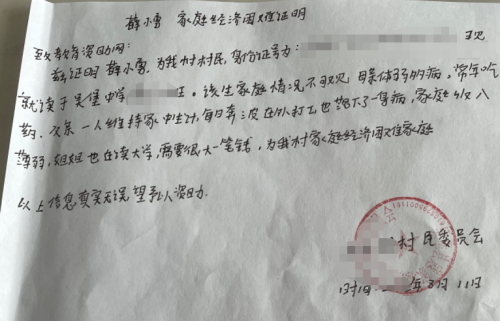 薛小雪 家庭经济困难证明
致教育资助网:
兹证明 薛小雪, 为我村村民, 身份证号为: 现
就读于吴堡中学 班。该生家庭情况不可观 母亲体弱多病, 常年吃
药, 父亲一人维持家中生计, 每日奔波在外打工也落下了一身病, 家庭收入
薄弱, 姐姐也在读大学, 需要很大一笔钱, 为我村家庭经济困难家庭
以上信息真实无误 望予以资助.
村民委员会
时间 年3月11日